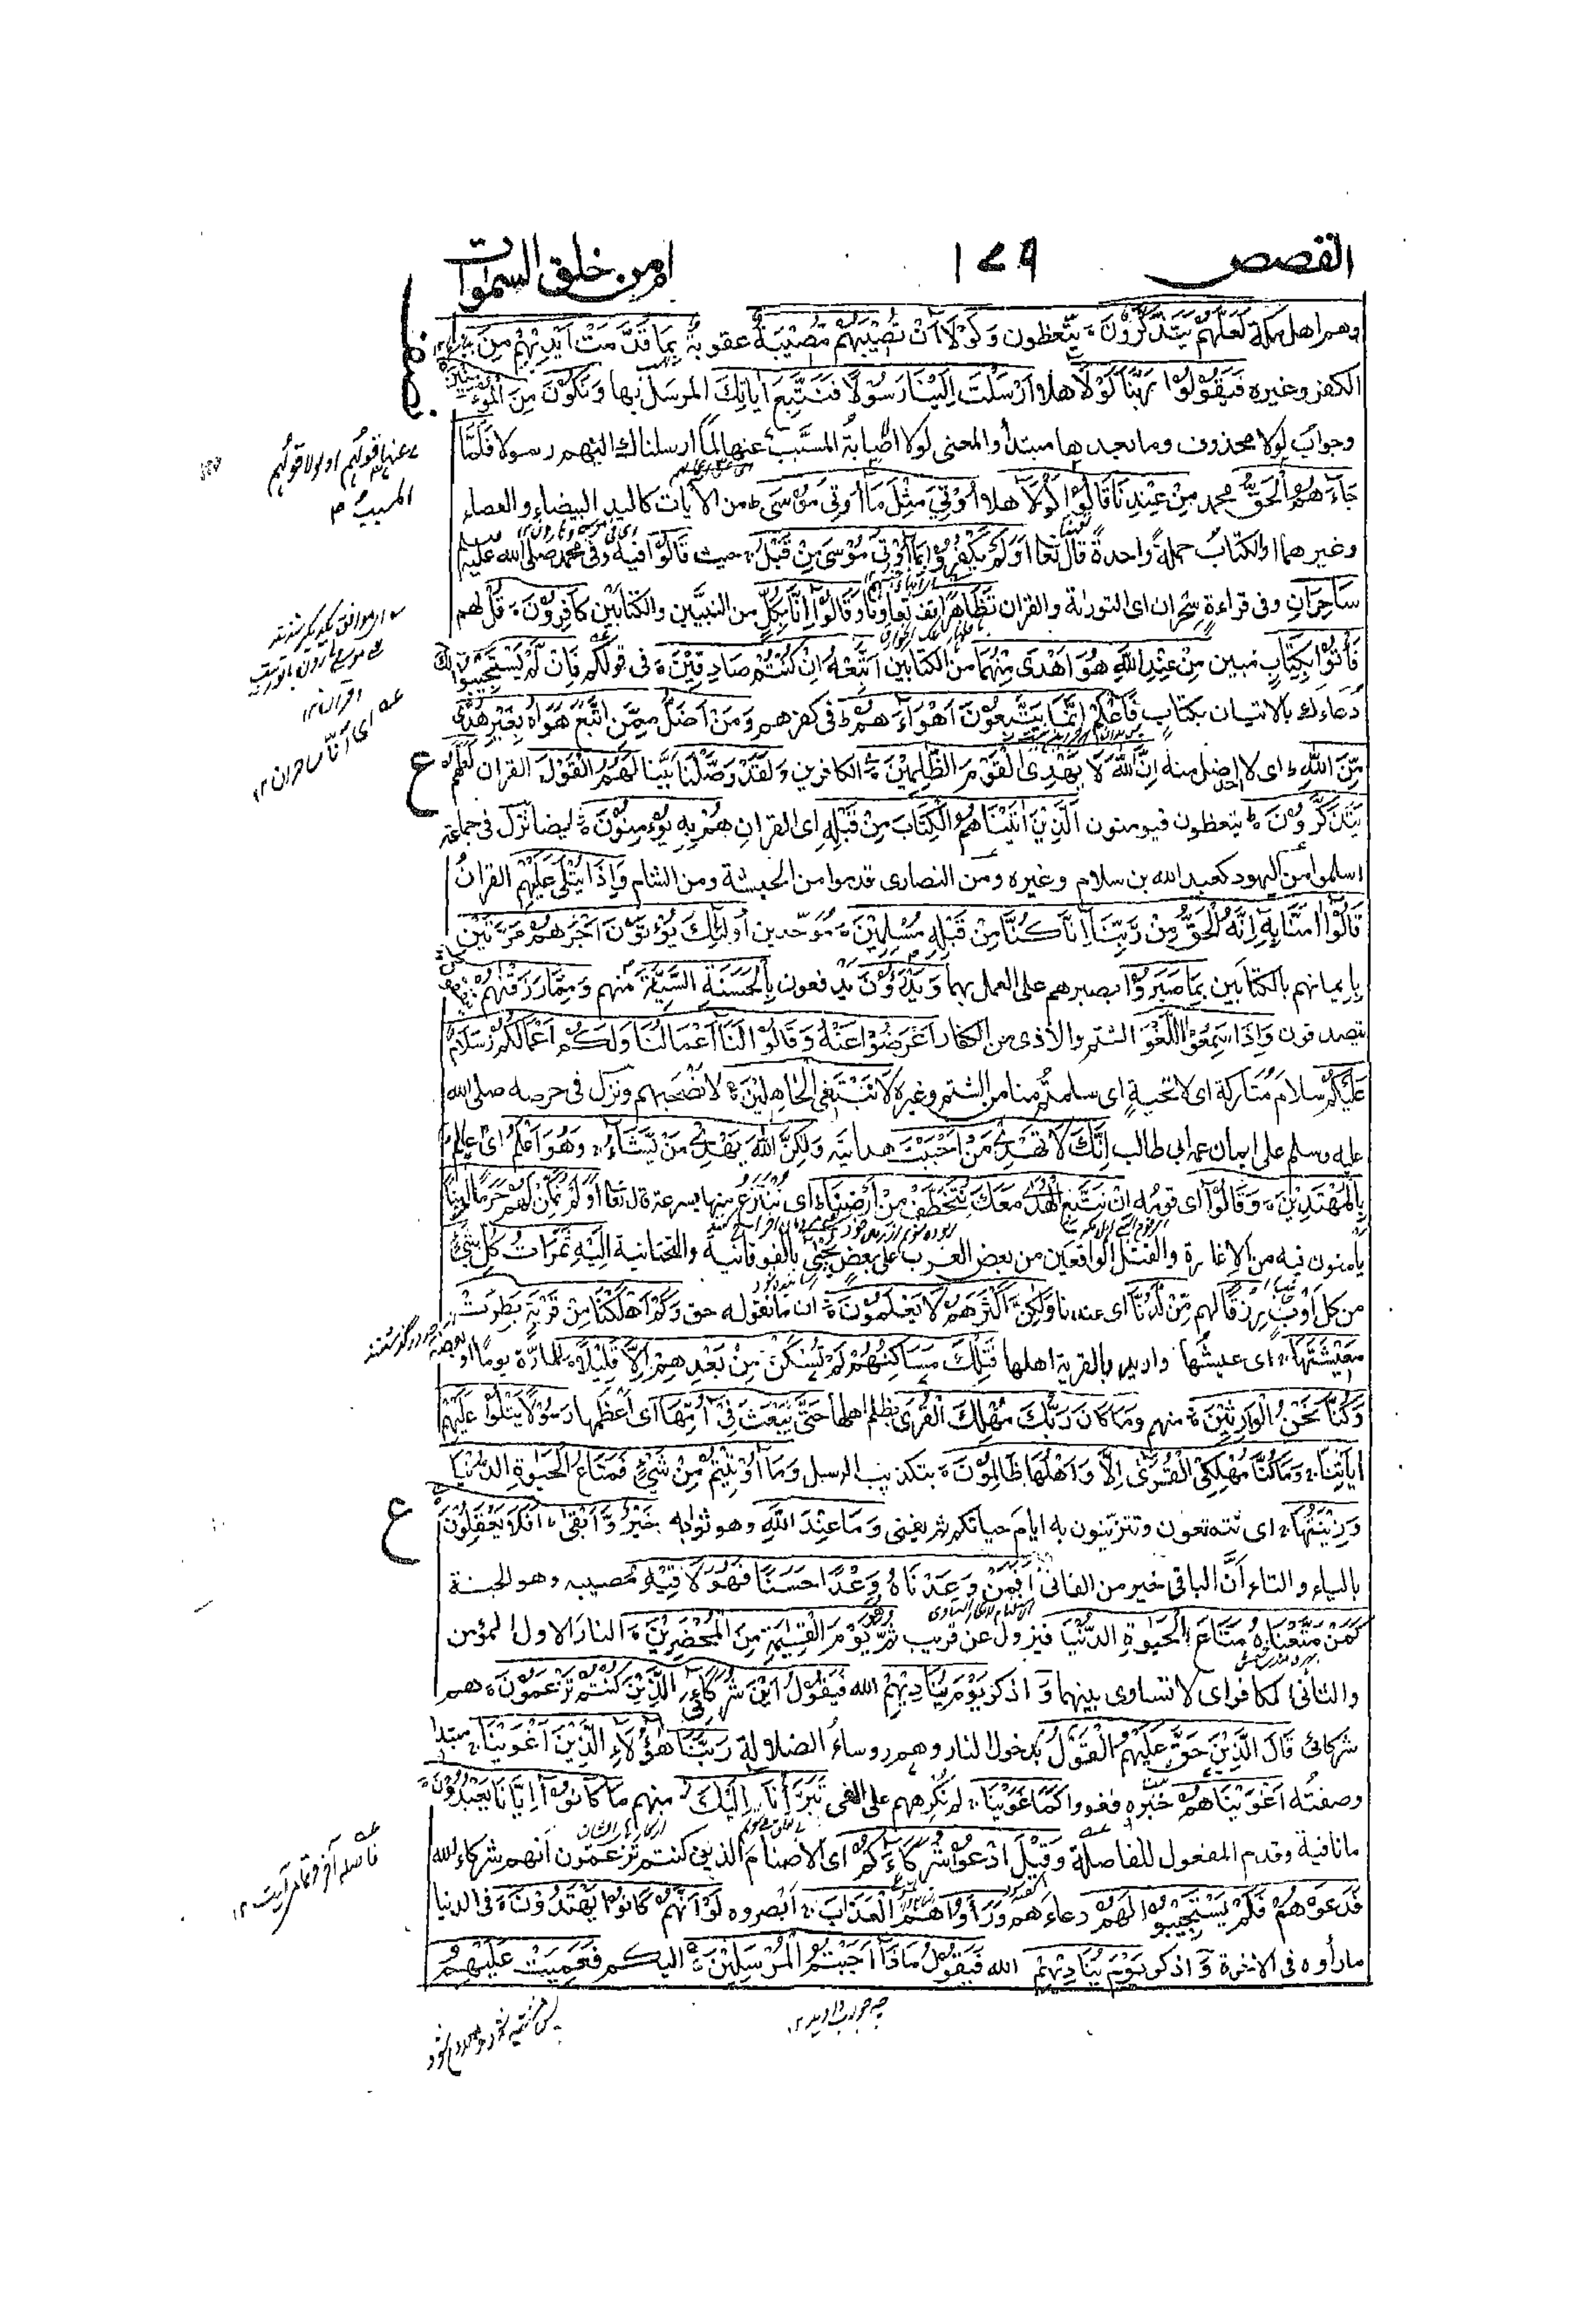 القصص ١٧٩ امن خلق السموات
وهم اهل مكة لَعَلَّهُمْ يَتَذَكَّرُوْنَ يتعظون وَلَوْلَا اَنْ تُصِيْبَهُمْ مُصِيْبَةٌ عقوبةٌ بِمَا قَدَّمَتْ اَيْدِيْهِمْ مِنَ
الكفر وغيره فَيَقُوْلُوْا رَبَّنَا لَوْلَا هلا اَرْسَلْتَ اِلَيْنَا رَسُوْلًا فَنَتَّبِعَ اٰيَاتِكَ المرسل بها وَنَكُوْنَ مِنَ
وجواب لولا محذوف وما بعدها مبتدأ والمعنى لولا اصابةُ المسبَّب عنها لما ارسلناك اليهم رسولا فَلَمَّا
جَآءَهُمُ الْحَقُّ محمد مِنْ عِنْدِنَا قَالُوْا لَوْلَآ هلا اُوْتِيَ مِثْلَ مَآ اُوْتِيَ مُوْسٰى من الاٰيات كاليد البيضاء والعصاء
وغيرهما او الكتاب جملةً واحدةً قال تعا اَوَلَمْ يَكْفُرُوْا بِمَا اُوْتِيَ مُوْسٰى مِنْ قَبْلُ حيث قَالُوْا فيه وفى محمد صلى الله عليه
سَاحِرَانِ وفى قراءة سِحْران اى التوراة والقران تَظَاهَرَا تعاونا وَقَالُوْا اِنَّا بِكُلٍّ من النبيين والكتابين كَافِرُوْنَ قُلْ لهم
فَأْتُوْا بِكِتَابٍ مِّنْ عِنْدِ اللّٰهِ هُوَ اَهْدٰى مِنْهُمَا من الكتابين اَتَّبِعْهُ اِنْ كُنْتُمْ صَادِقِيْنَ فى قولكم فَاِنْ لَّمْ يَسْتَجِيْبُوْا لَكَ
دُعاءك بالاتيان بكتاب فَاعْلَمْ اَنَّمَا يَتَّبِعُوْنَ اَهْوَآءَهُمْ فى كفرهم وَمَنْ اَضَلُّ مِمَّنِ اتَّبَعَ هَوَاهُ بِغَيْرِ هُدًى
مِّنَ اللّٰهِ اى لا اضل منه اِنَّ اللّٰهَ لَا يَهْدِى الْقَوْمَ الظّٰلِمِيْنَ الكافرين وَلَقَدْ وَصَّلْنَا بيَّنا لَهُمُ الْقَوْلَ القران لَعَلَّهُمْ
يَتَذَكَّرُوْنَ يتعظون فيومنون اَلَّذِيْنَ اٰتَيْنَاهُمُ الْكِتَابَ مِنْ قَبْلِهِ اى القران هُمْ بِهِ يُؤْمِنُوْنَ ايضا نزل فى جماعة
اسلموا من اليهود كعبد الله بن سلام وغيره ومن النصارى قدموا من الحبشة ومن الشام وَاِذَا يُتْلٰى عَلَيْهِمْ القران
قَالُوْٓا اٰمَنَّا بِهٖ اِنَّهُ الْحَقُّ مِنْ رَّبِّنَا اِنَّا كُنَّا مِنْ قَبْلِهٖ مُسْلِمِيْنَ مُوَحِّدين اُولٰٓئِكَ يُؤْتَوْنَ اَجْرَهُمْ مَرَّتَيْنِ
بايمانهم بالكتابين بِمَا صَبَرُوْا بصبرهم على العمل بهما وَيَدْرَءُوْنَ يدفعون بِالْحَسَنَةِ السَّيِّئَةَ منهم وَمِمَّا رَزَقْنٰهُمْ
يتصدقون وَاِذَا سَمِعُوا اللَّغْوَ الشتم والاذى من الكفار اَعْرَضُوْا عَنْهُ وَقَالُوْا لَنَآ اَعْمَالُنَا وَلَكُمْ اَعْمَالُكُمْ سَلَامٌ
عَلَيْكُمْ سلامُ متاركة اى لا تحيةٍ اى سلمتم منا من الشتم وغيره لَا نَبْتَغِى الْجَاهِلِيْنَ لا نصحبهم ونزل فى حرصه صلى الله
عليه وسلم على ايمان عمه ابى طالب اِنَّكَ لَا تَهْدِيْ مَنْ اَحْبَبْتَ هدايته وَلٰكِنَّ اللّٰهَ يَهْدِيْ مَنْ يَّشَآءُ وَهُوَ اَعْلَمُ اى عالم
بِالْمُهْتَدِيْنَ وَقَالُوْا اى قومه اِنْ نَتَّبِعِ الْهُدٰى مَعَكَ نُتَخَطَّفْ مِنْ اَرْضِنَا اى ننتزع منها بسرعة قال تعا اَوَلَمْ نُمَكِّنْ لَهُمْ حَرَمًا اٰمِنًا
يأمنون فيه من الاغارة والقتل الواقعين من بعض العرب على بعض يُجْبٰى بالفوقانية والتحتانية اِلَيْهِ ثَمَرَاتُ كُلِّ شَيْءٍ
من كل اوب رِزْقًا لهم مِّنْ لَّدُنَّا اى عندنا وَلٰكِنَّ اَكْثَرَهُمْ لَا يَعْلَمُوْنَ ان ما نقوله حق وَكَمْ اَهْلَكْنَا مِنْ قَرْيَةٍ بَطِرَتْ
مَعِيْشَتَهَا اى عيشَها واريد بالقرية اهلها فَتِلْكَ مَسَاكِنُهُمْ لَمْ تُسْكَنْ مِّنْ بَعْدِهِمْ اِلَّا قَلِيْلًا للمارّة يوما او بعضه
وَكُنَّا نَحْنُ الْوَارِثِيْنَ منهم وَمَا كَانَ رَبُّكَ مُهْلِكَ الْقُرٰى بظلم اهلها حَتّٰى يَبْعَثَ فِيْٓ اُمِّهَا اى اعظمها رَسُوْلًا يَّتْلُوْا عَلَيْهِمْ
اٰيَاتِنَا وَمَا كُنَّا مُهْلِكِى الْقُرٰى اِلَّا وَاَهْلُهَا ظَالِمُوْنَ بتكذيب الرسل وَمَا اُوْتِيْتُمْ مِّنْ شَيْءٍ فَمَتَاعُ الْحَيٰوةِ الدُّنْيَا
وَزِيْنَتُهَا اى تتمتعون وتتزينون به ايام حياتكم ثم يفنى وَمَا عِنْدَ اللّٰهِ وهو ثوابه خَيْرٌ وَّاَبْقٰى اَفَلَا يَعْقِلُوْنَ
بالياء والتاء انَّ الباقى خير من الفانى اَفَمَنْ وَعَدْنَاهُ وَعْدًا حَسَنًا فَهُوَ لَاقِيْهِ مصيبه وهو الجنة
كَمَنْ مَّتَّعْنَاهُ مَتَاعَ الْحَيٰوةِ الدُّنْيَا فيزول عن قريب ثُمَّ هُوَ يَوْمَ الْقِيٰمَةِ مِنَ الْمُحْضَرِيْنَ النار الاول المؤمن
والثانى الكافر اى لا تساوى بينهما وَ اذكر يَوْمَ يُنَادِيْهِمْ الله فَيَقُوْلُ اَيْنَ شُرَكَآءِىَ الَّذِيْنَ كُنْتُمْ تَزْعُمُوْنَ هم
شركائى قَالَ الَّذِيْنَ حَقَّ عَلَيْهِمُ الْقَوْلُ بدخول النار وهم روساء الضلالة رَبَّنَا هٰٓؤُلَآءِ الَّذِيْنَ اَغْوَيْنَا مبتدا
وصفته اَغْوَيْنَاهُمْ خبره فغووا كَمَا غَوَيْنَا لم نكرههم على الغى تَبَرَّأْنَا اِلَيْكَ منهم مَا كَانُوْآ اِيَّانَا يَعْبُدُوْنَ
ما نافية وقدم المفعول للفاصلة وَقِيْلَ ادْعُوْا شُرَكَآءَكُمْ اى الاصنام الذين كنتم تزعمون انهم شركاء الله
فَدَعَوْهُمْ فَلَمْ يَسْتَجِيْبُوْا لَهُمْ دعاءهم وَرَاَوُا هُمُ الْعَذَابَ ابصروه لَوْ اَنَّهُمْ كَانُوْا يَهْتَدُوْنَ فى الدنيا
ما رأوه فى الاخرة وَ اذكر يَوْمَ يُنَادِيْهِمْ الله فَيَقُوْلُ مَاذَآ اَجَبْتُمُ الْمُرْسَلِيْنَ اليكم فَعَمِيَتْ عَلَيْهِمُ
ع
ع